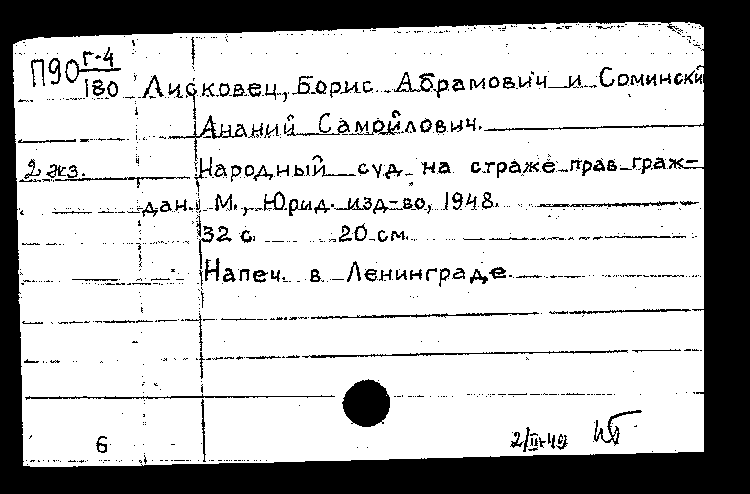 П90 Г-4/180
Лисковец, Борис Абрамович и Соминский
Ананий Самойлович.
2 экз. Народный суд на страже прав граж-
дан. М., Юрид. изд-во, 1948.
32 с. 20 см.
Напеч. в Ленинграде.
6 2/III-49